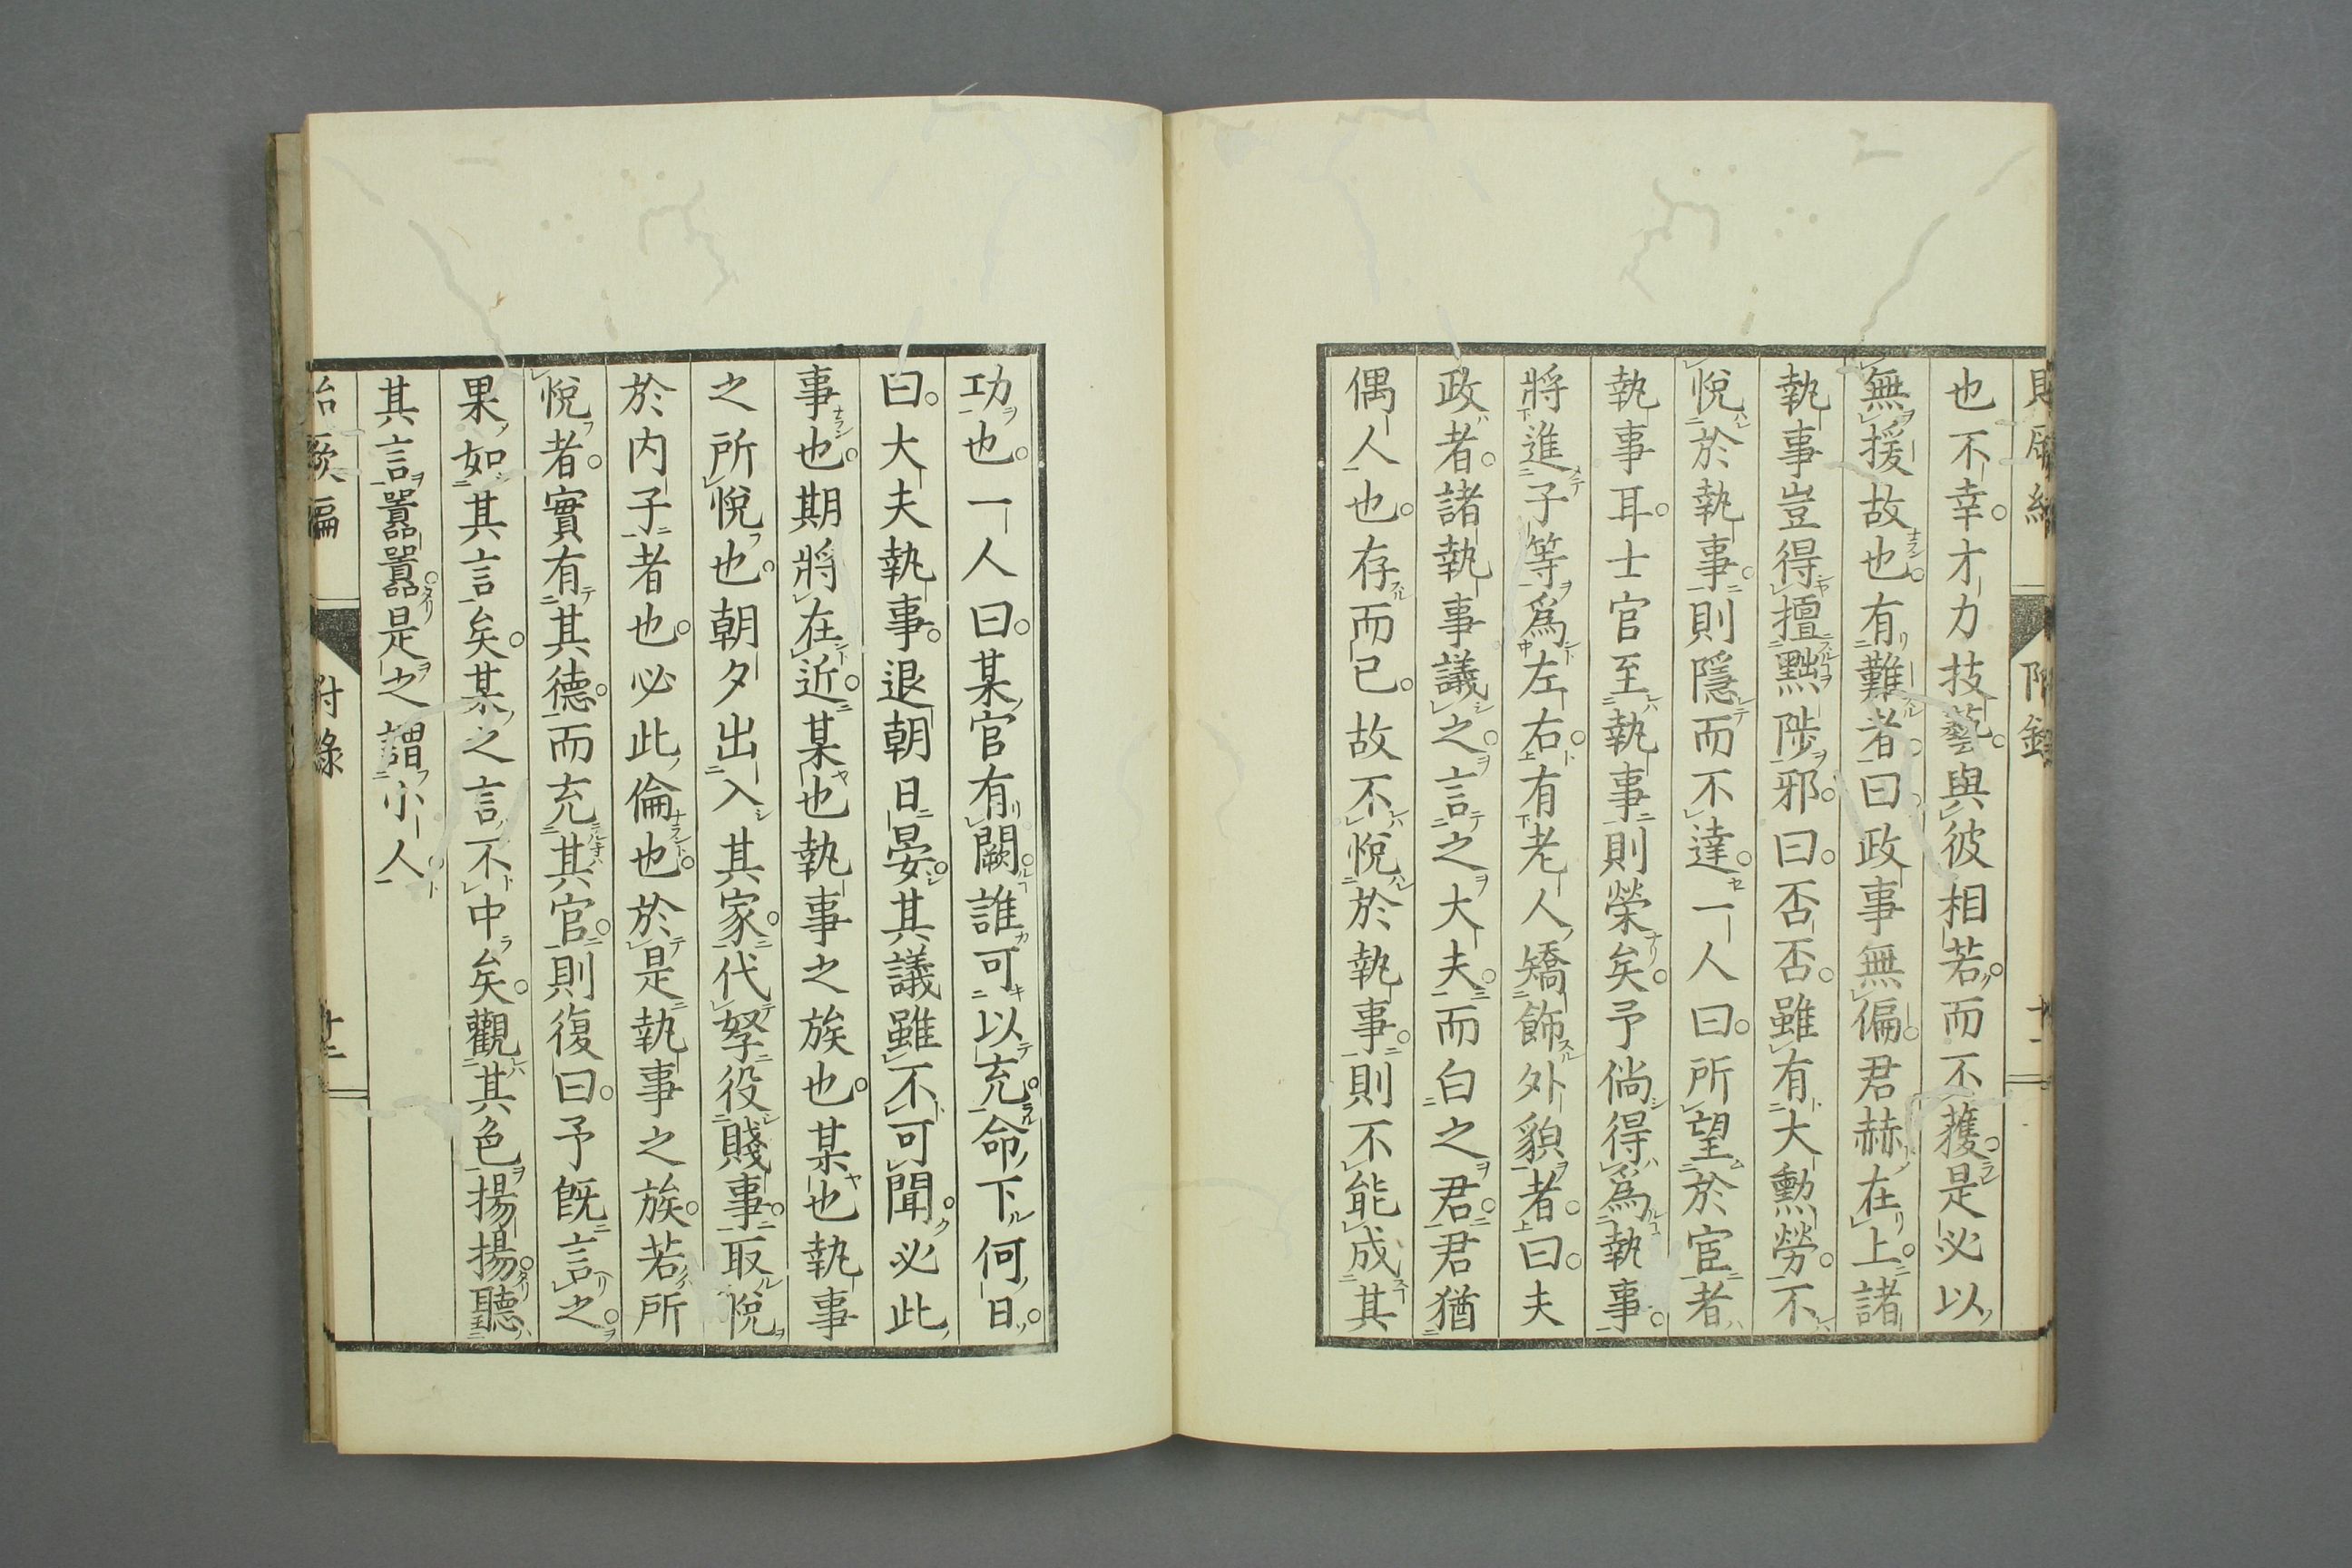 附錄
也不幸。才力技藝。與彼相若。而不獲。是必以
無援故也。有難者。曰。政事無偏。君赫在上。諸
執事豈得擅黜陟邪。曰。否否。雖有大勳勞。不
悅於執事。則隱而不達。一人曰。所望於宦者
執事耳。士官至執事則榮矣。予倘得爲執事。
將進子等爲左右。有老人矯飾外貌者。曰。夫
政者。諸執事議之。言之大夫。而白之君。君猶
偶人也。存而已。故不悅於執事。則不能成其
功也。一人曰。某官有闕。誰可以充。命下何日。
曰。大夫執事。退朝日晏。其議雖不可聞。必此
事也。期將在近。某也執事之族也。某也執事
之所悅也。朝夕出入其家。代孥役賤事。取悅
於内子者也。必此倫也。於是執事之族。若所
悅者。實有其德。而充其官。則復曰。予旣言之。
果如其言矣。某之言不中矣。觀其色揚揚。聽
其言囂囂。是之謂小人。
附錄